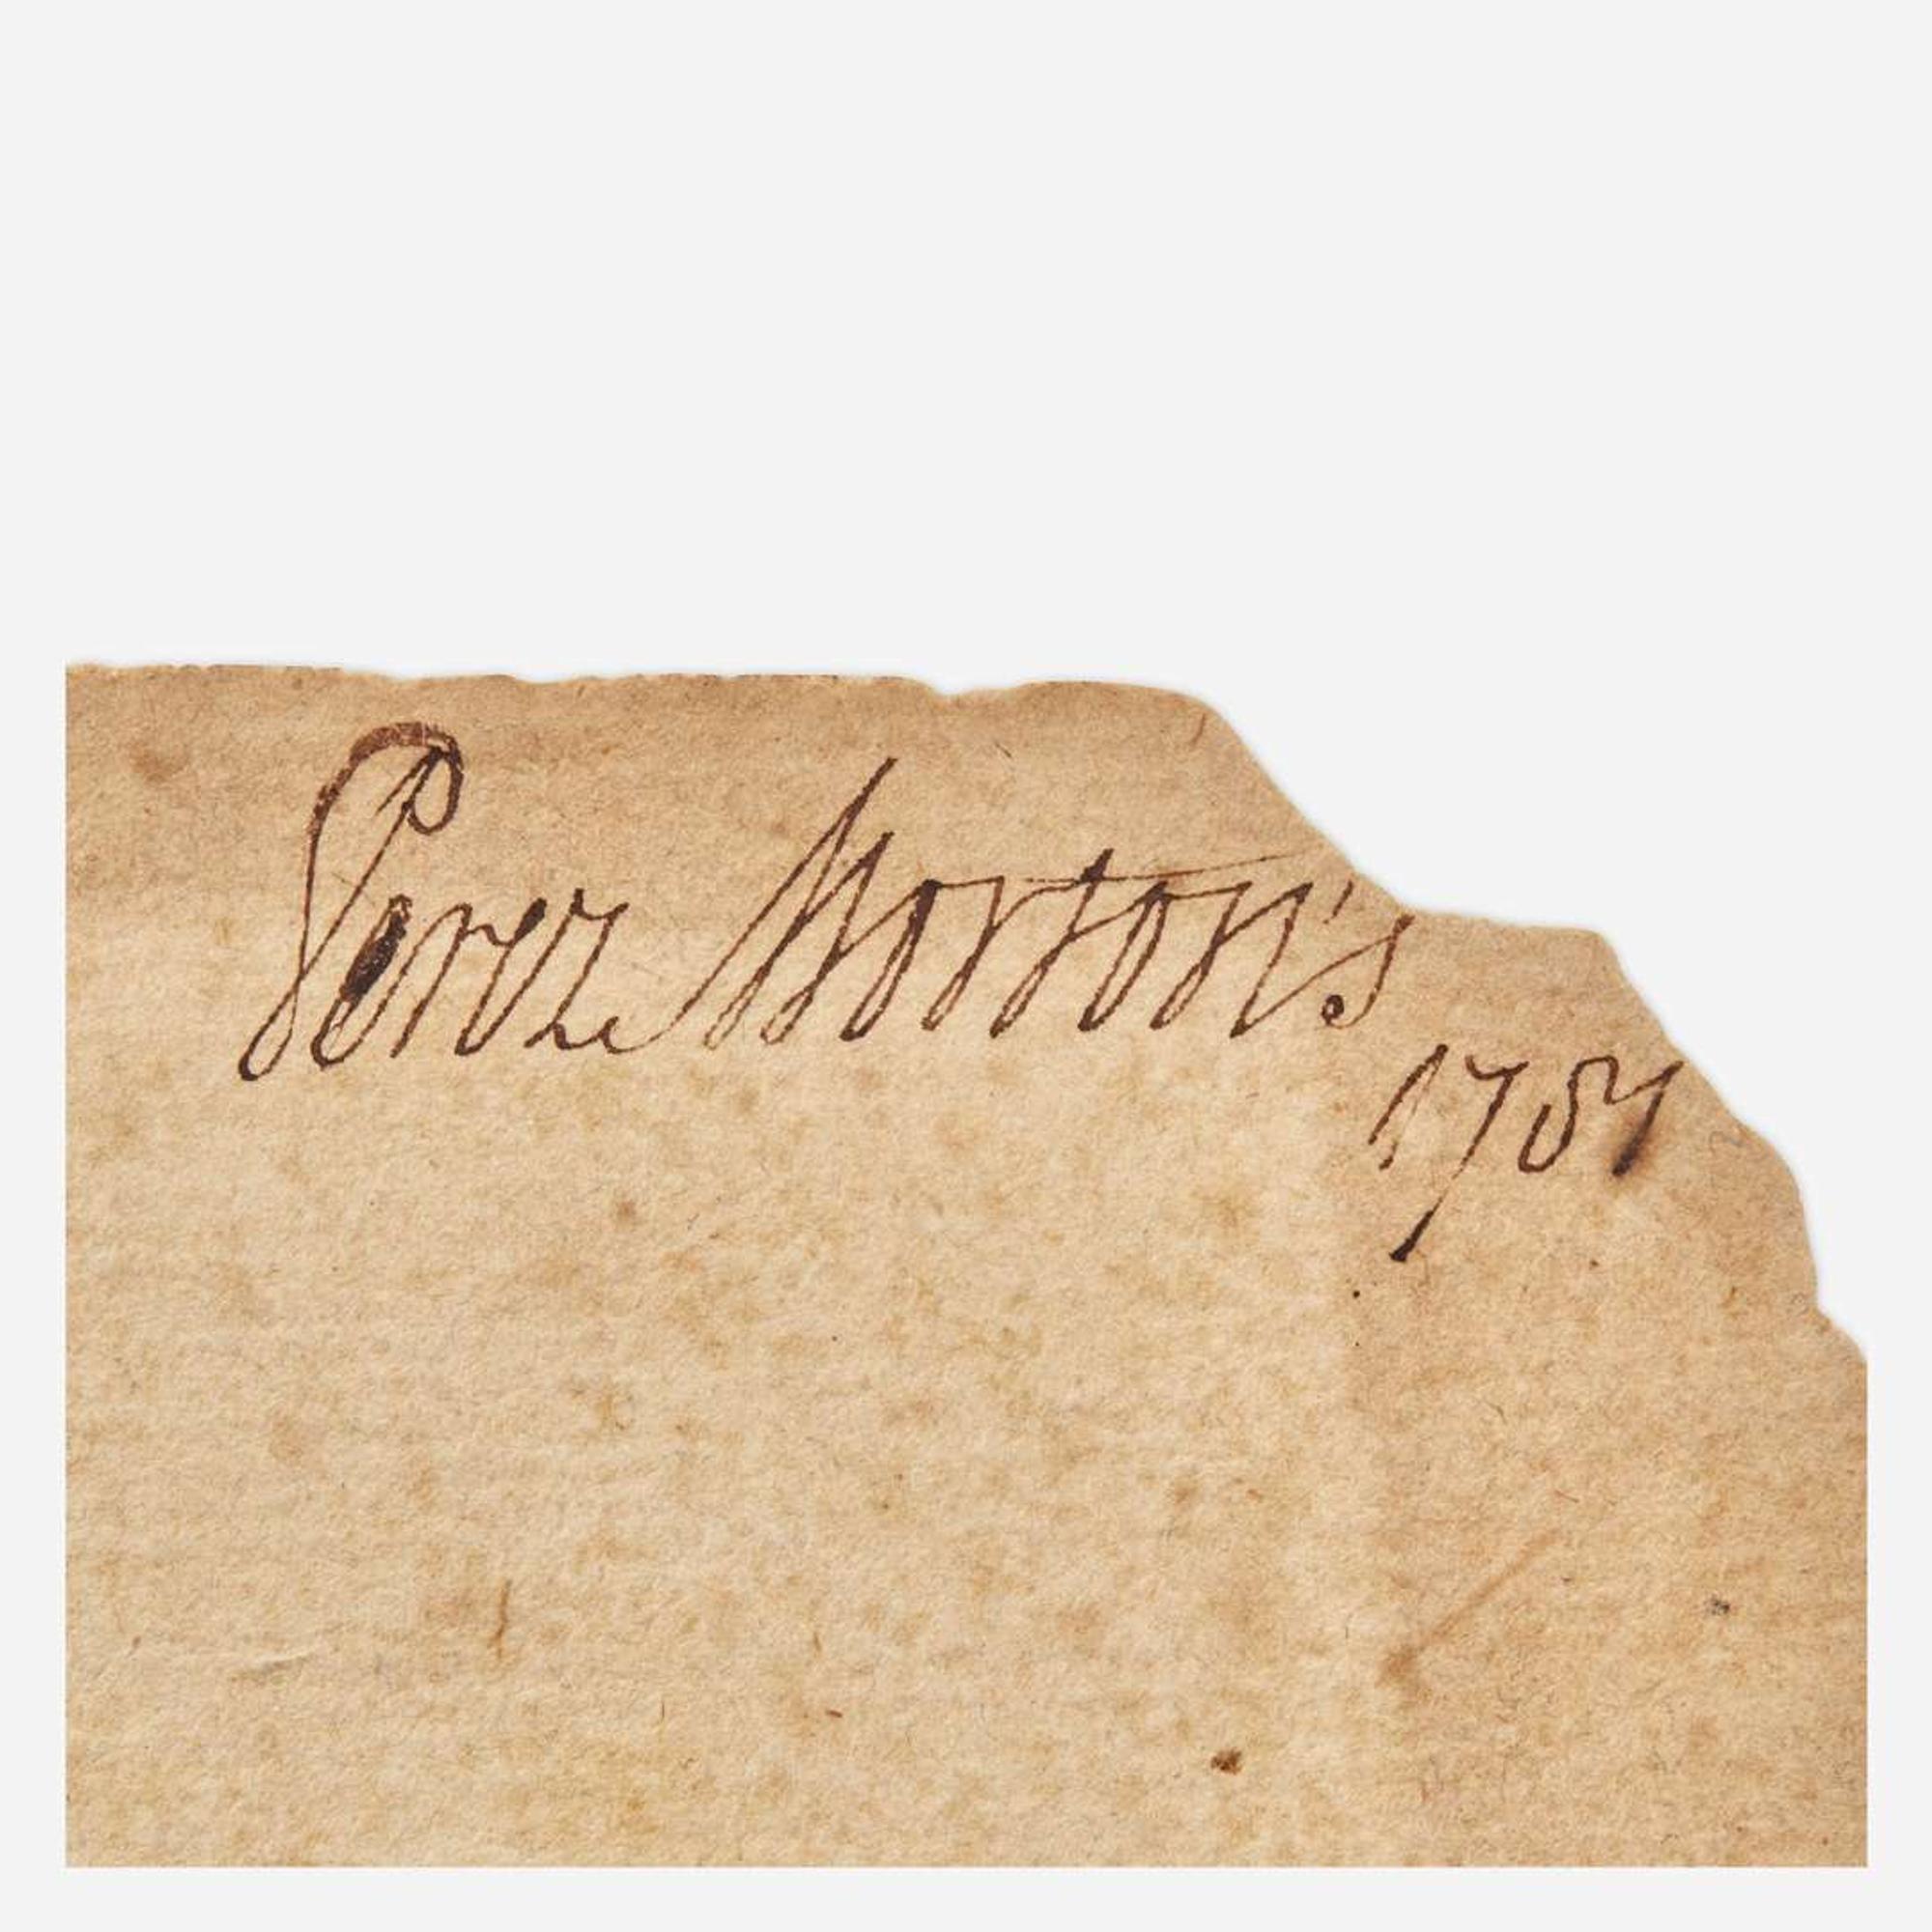 Perez Morton's
1781